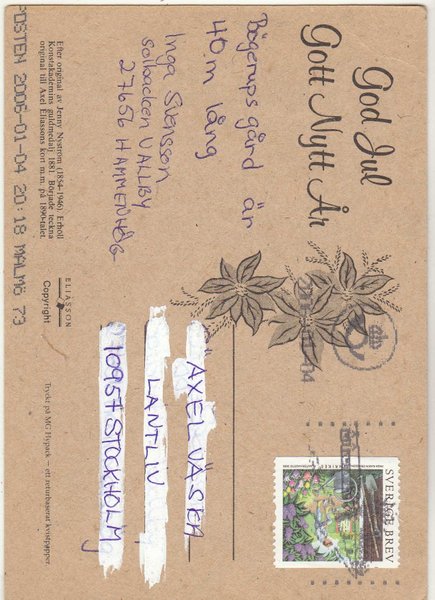 God Jul
Gott Nytt År
Bögerups gård är
40.m lång
Inga Svensson
solbacken VALLBY
27656 HAMMENHÖG
Efter original av Jenny Nyström (1854-1946) Erhöll
Konstakademins guldmedalj 1881. Började teckna
original till Axel Eliassons kort m.m. på 1890-talet.
POSTEN 2006-01-04 20:18 MALMÖ 73
ELIASSON
Copyright
Tryckt på MG Hypack – ett returbaserat kvistpapper.
SVERIGE BREV
AXEL VÄSKA
LANTLIV
10957 STOCKHOLM